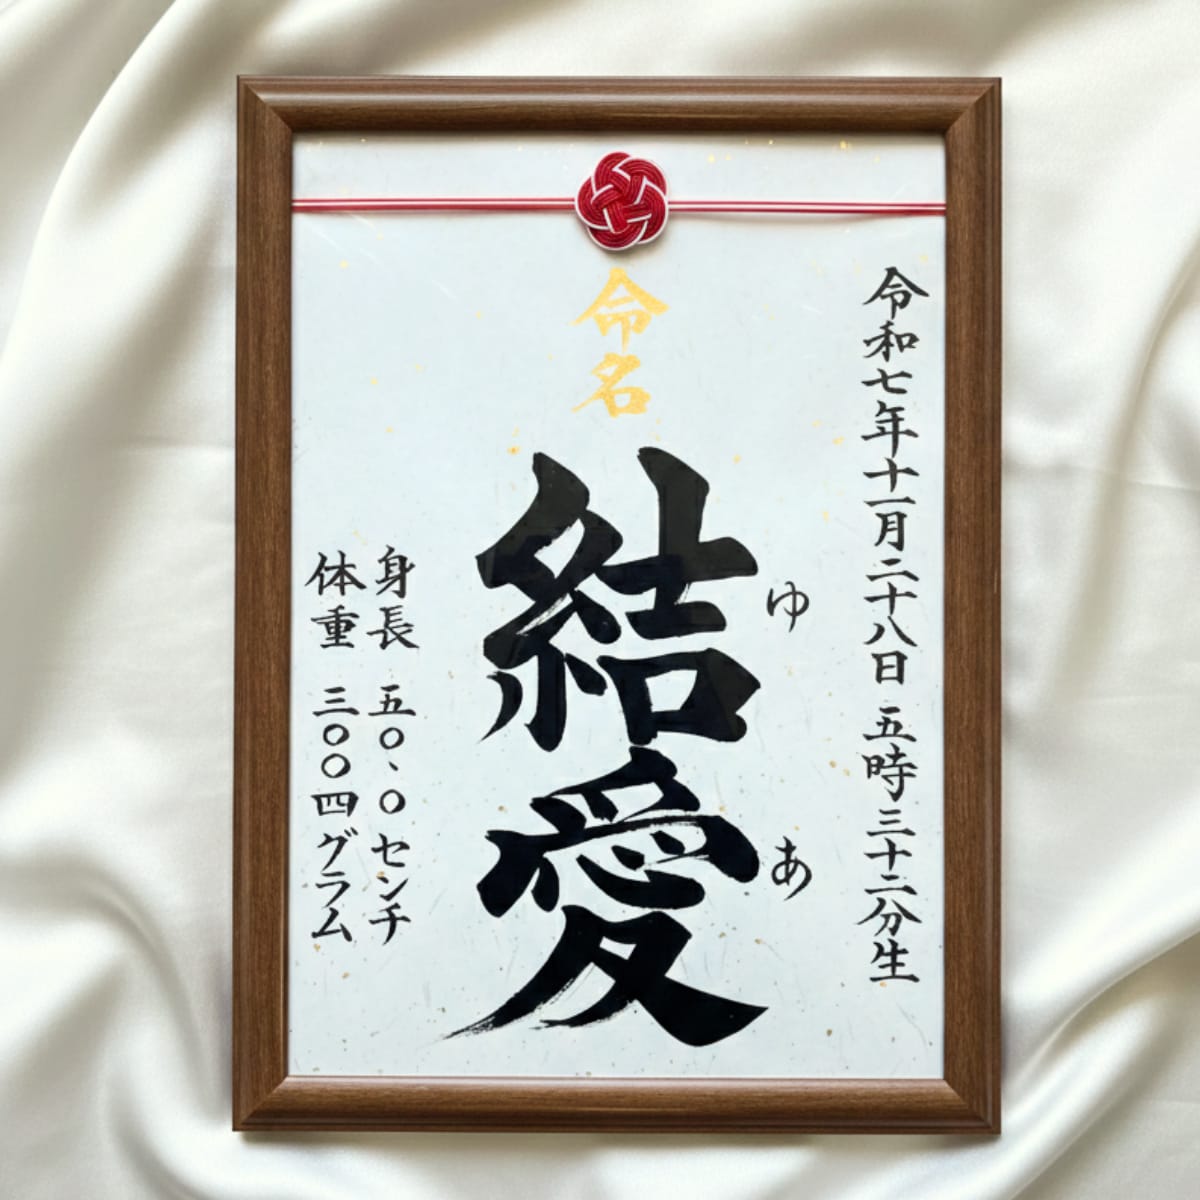 令和七年十一月二十八日 五時三十二分生
命名
結愛
ゆ
あ
身長 五〇、〇センチ
体重 三〇〇四グラム